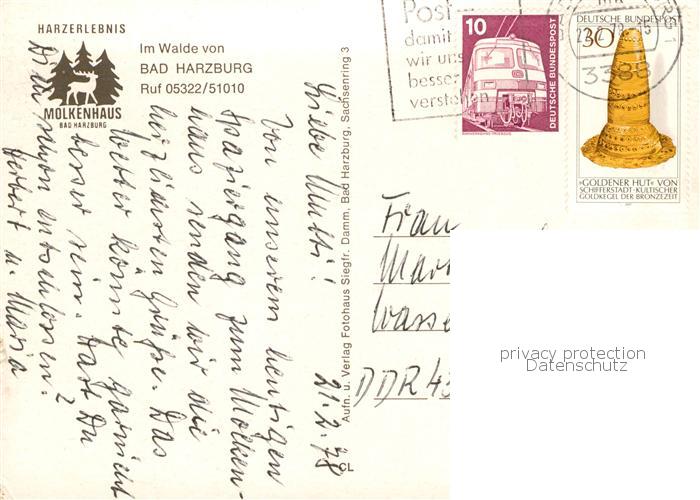 HARZERLEBNIS
MOLKENHAUS
BAD HARZBURG
Im Walde von
BAD HARZBURG
Ruf 05322/51010
21.2.78
Liebe Mutti!
Von unserem heutigen
Spaziergang zum Molken-
haus senden wir die
herzlichsten Grüße. Das
Wetter könnte garnicht
besser sein. Hast Du
Dich schon entschlossen?
Herbert u. Maria
Aufn. u. Verlag Fotohaus Siegfr. Damm, Bad Harzburg, Sachsenring 3
CL
Post
damit
wir uns
besser
verstehen
10
DEUTSCHE BUNDESPOST
DEUTSCHE BUNDESPOST
30
3388
»GOLDENER HUT« VON
SCHIFFERSTADT·KULTISCHER
GOLDKEGEL DER BRONZEZEIT
Frau
Mar
Wasse
DDR 43
privacy protection
Datenschutz